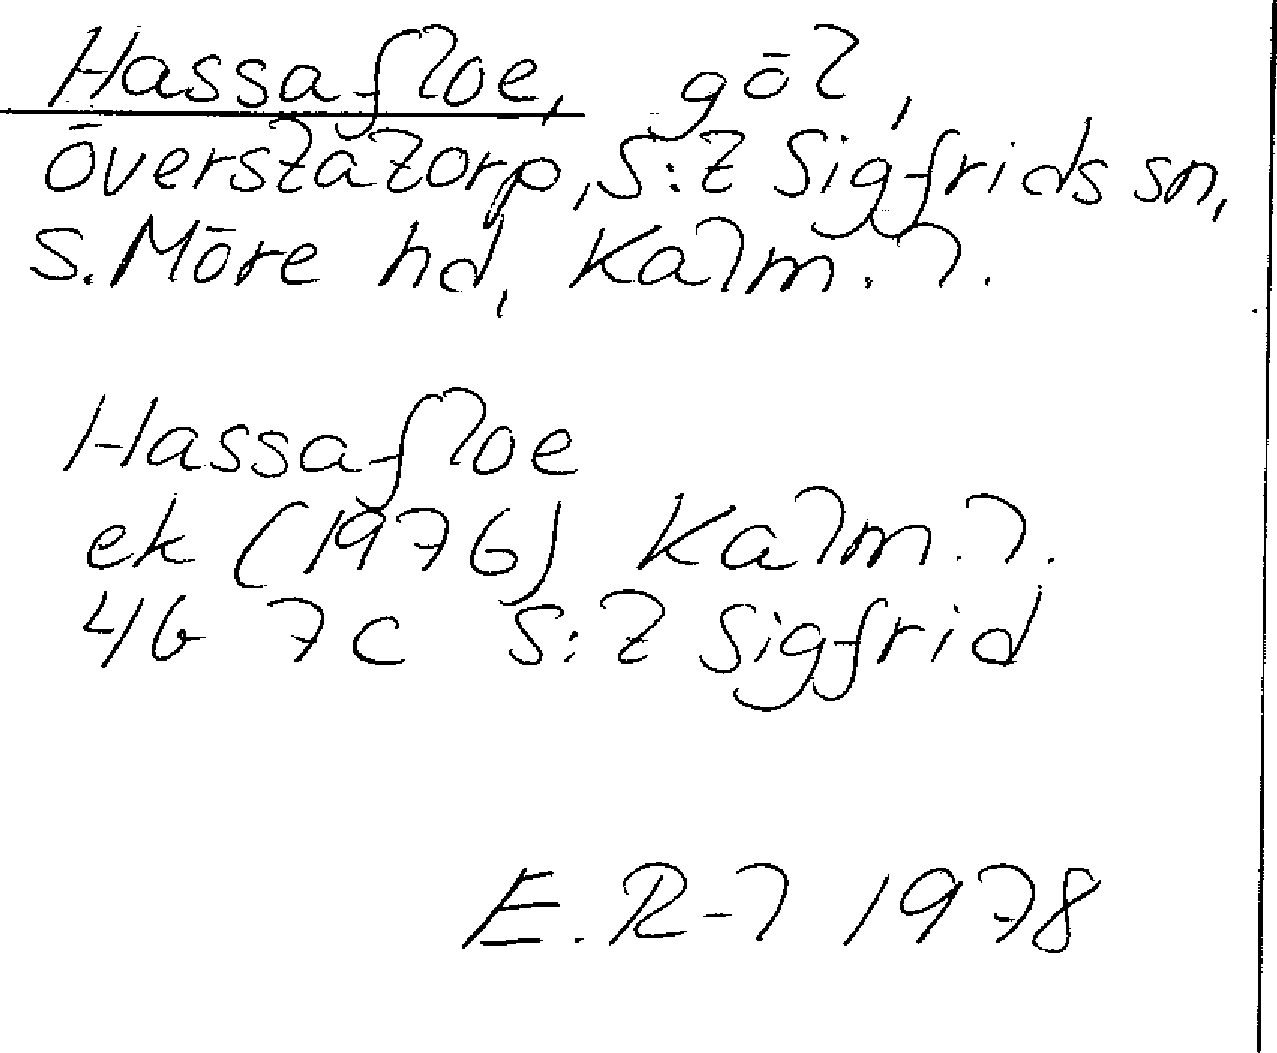 Hassafloe, göl,
Överstatorp, S:t Sigfrids sn,
S. Möre hd, Kalm. l.
Hassafloe
ek (1976) Kalm. l.
4G 7c S:t Sigfrid
E. R-l 1978